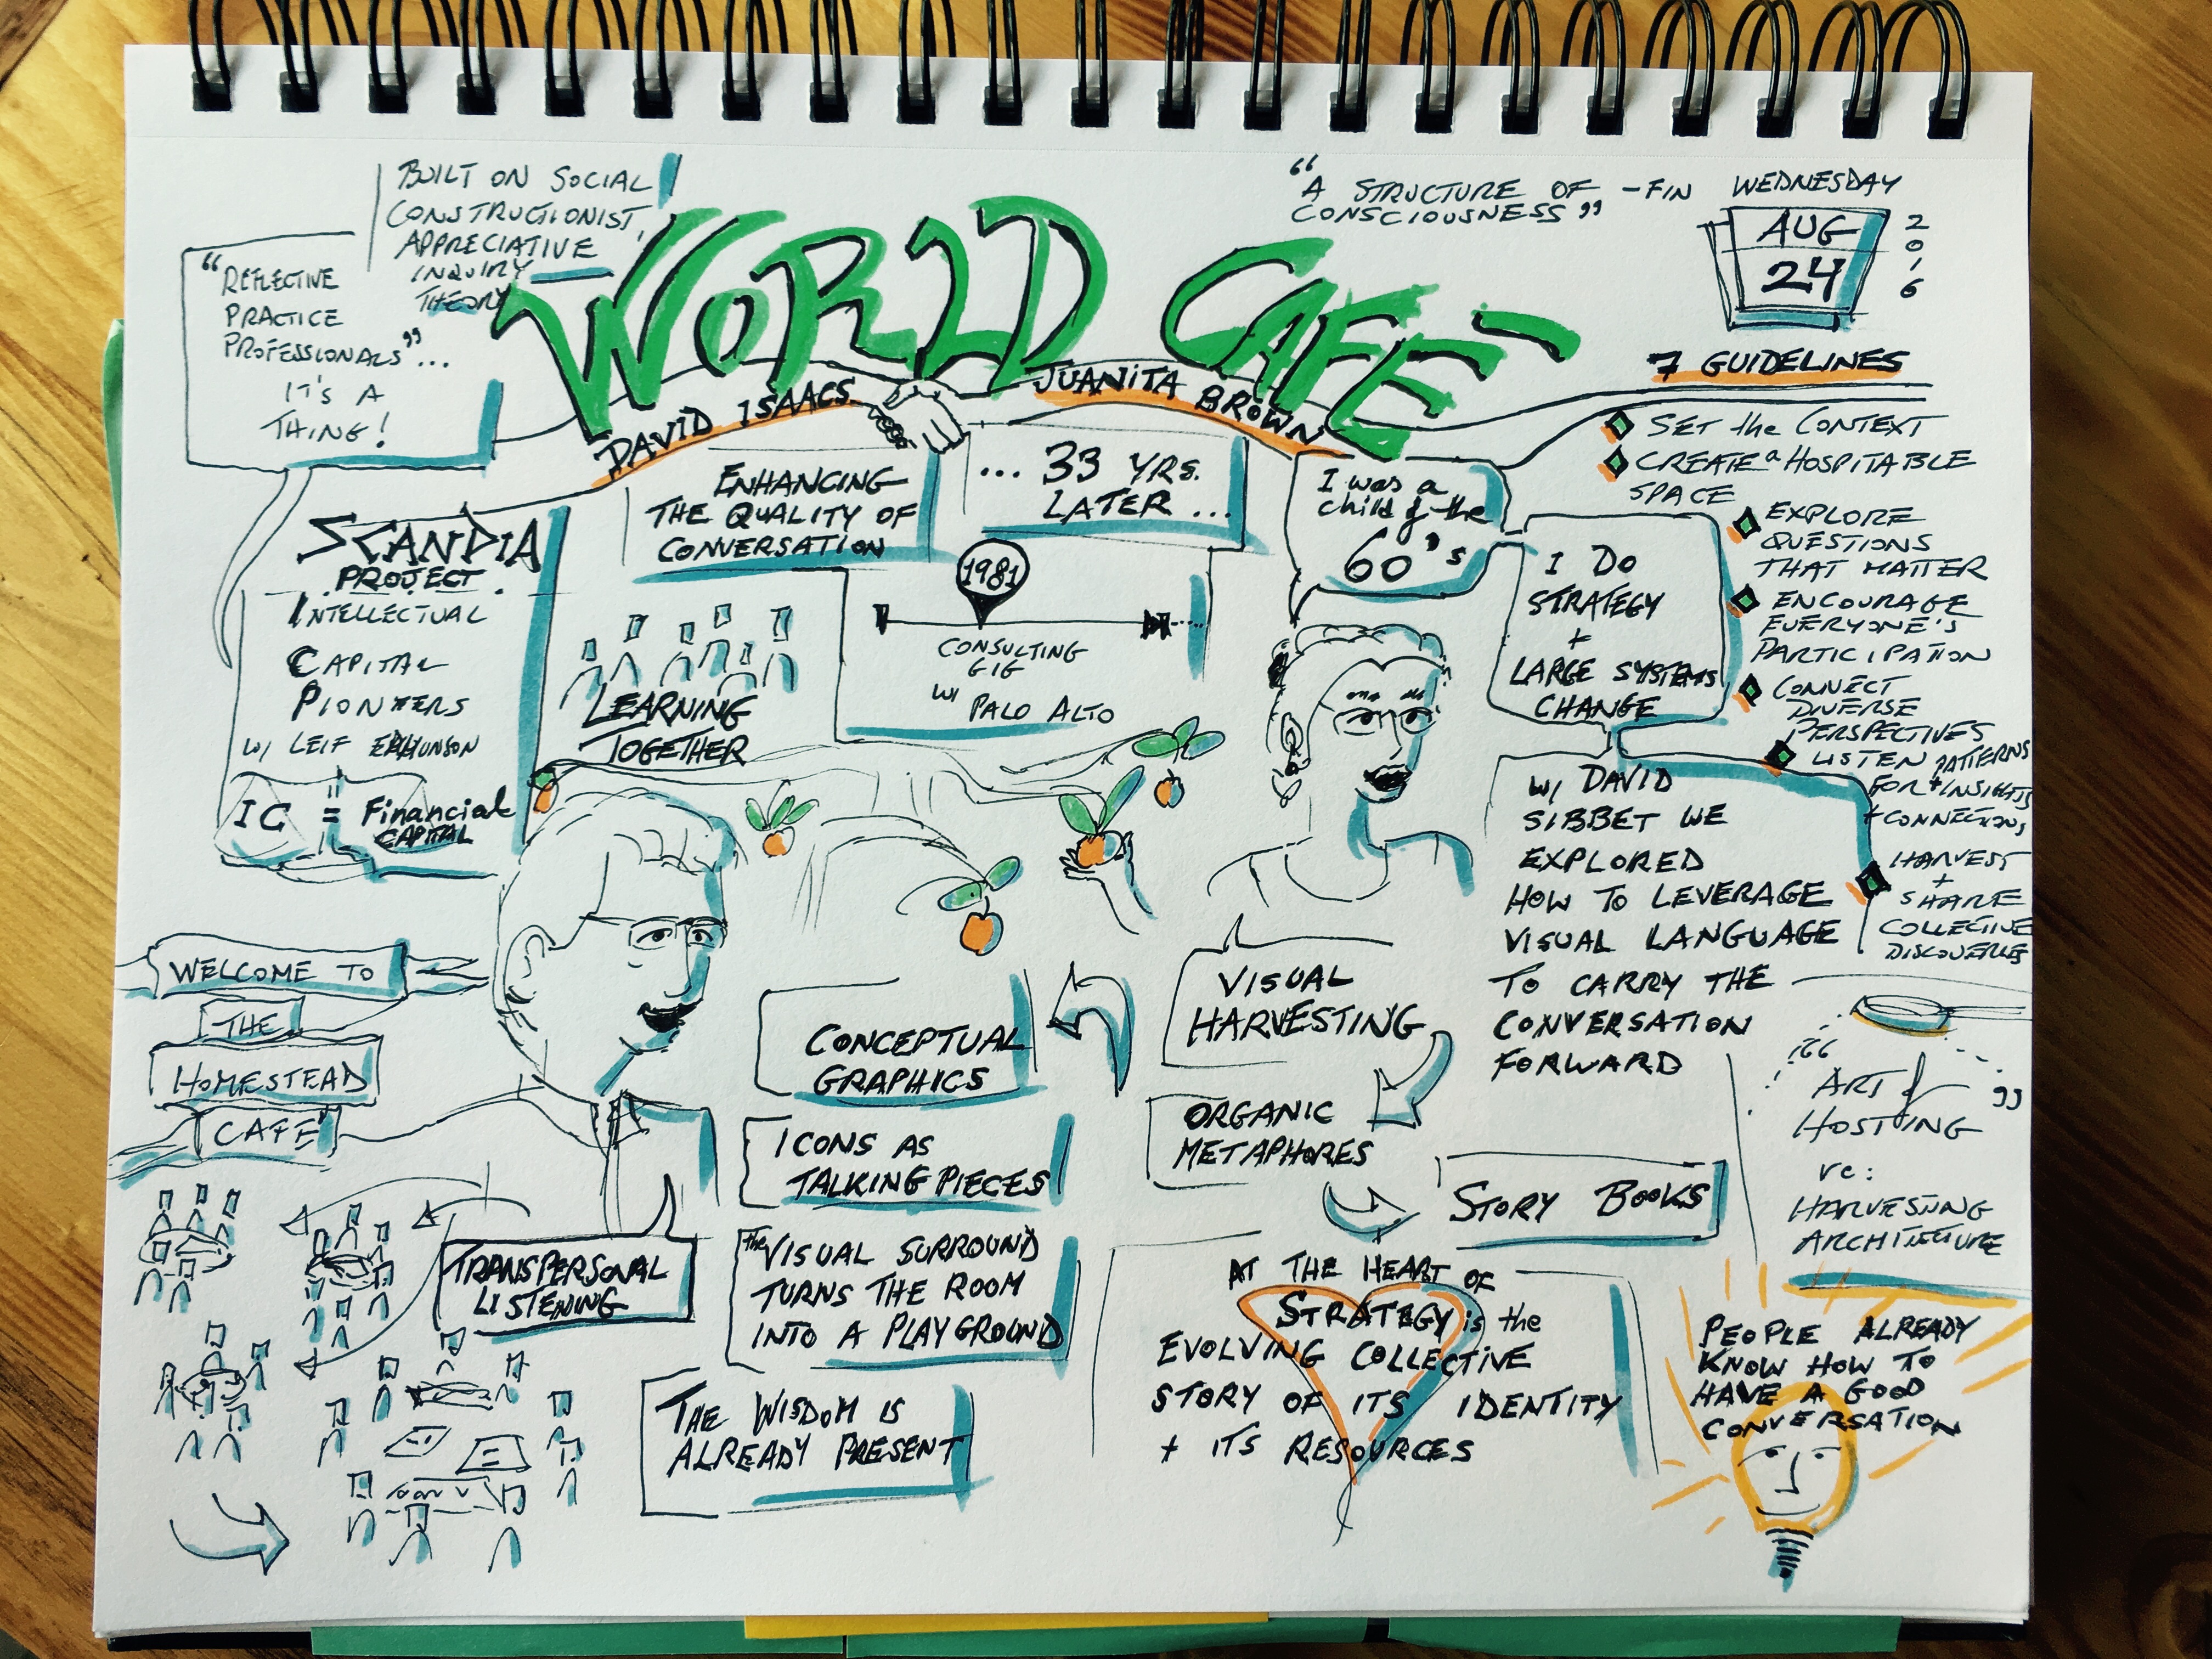 BUILT ON SOCIAL
CONSTRUCTIONIST,
APPRECIATIVE
INQUIRY
THEORY
"REFLECTIVE
PRACTICE
PROFESSIONALS"...
IT'S A
THING!
WORLD CAFE
DAVID ISAACS
JUANITA BROWN
"A STRUCTURE OF - FIN
CONSCIOUSNESS"
WEDNESDAY
AUG
24
2016
7 GUIDELINES
SET the CONTEXT
CREATE a HOSPITABLE
SPACE
EXPLORE
QUESTIONS
THAT MATTER
ENCOURAGE
EVERYONE'S
PARTICIPATION
CONNECT
DIVERSE
PERSPECTIVES
LISTEN PATTERNS
FOR + INSIGHTS
+ CONNECTIONS
HARVEST
+
SHARE
COLLECTIVE
DISCOVERIES
SCANDIA
PROJECT
INTELLECTUAL
CAPITAL
PIONEERS
W/ LEIF
IC = Financial
CAPITAL
ENHANCING
THE QUALITY OF
CONVERSATION
... 33 YRS.
LATER ...
LEARNING
TOGETHER
1981
CONSULTING
GIG
W/ PALO ALTO
I was a
child of the
60's
I DO
STRATEGY
+
LARGE SYSTEMS
CHANGE
W/ DAVID
SIBBET WE
EXPLORED
HOW TO LEVERAGE
VISUAL LANGUAGE
TO CARRY THE
CONVERSATION
FORWARD
WELCOME TO
THE
HOMESTEAD
CAFE
TRANSPERSONAL
LISTENING
VISUAL
HARVESTING
CONCEPTUAL
GRAPHICS
ORGANIC
METAPHORES
ICONS AS
TALKING PIECES
STORY BOOKS
The VISUAL SURROUND
TURNS THE ROOM
INTO A PLAYGROUND
THE WISDOM IS
ALREADY PRESENT
AT THE HEART OF
STRATEGY is the
EVOLVING COLLECTIVE
STORY OF ITS IDENTITY
+ ITS RESOURCES
"ART of
HOSTING"
re:
HARVESTING
ARCHITECTURE
PEOPLE ALREADY
KNOW HOW TO
HAVE A GOOD
CONVERSATION